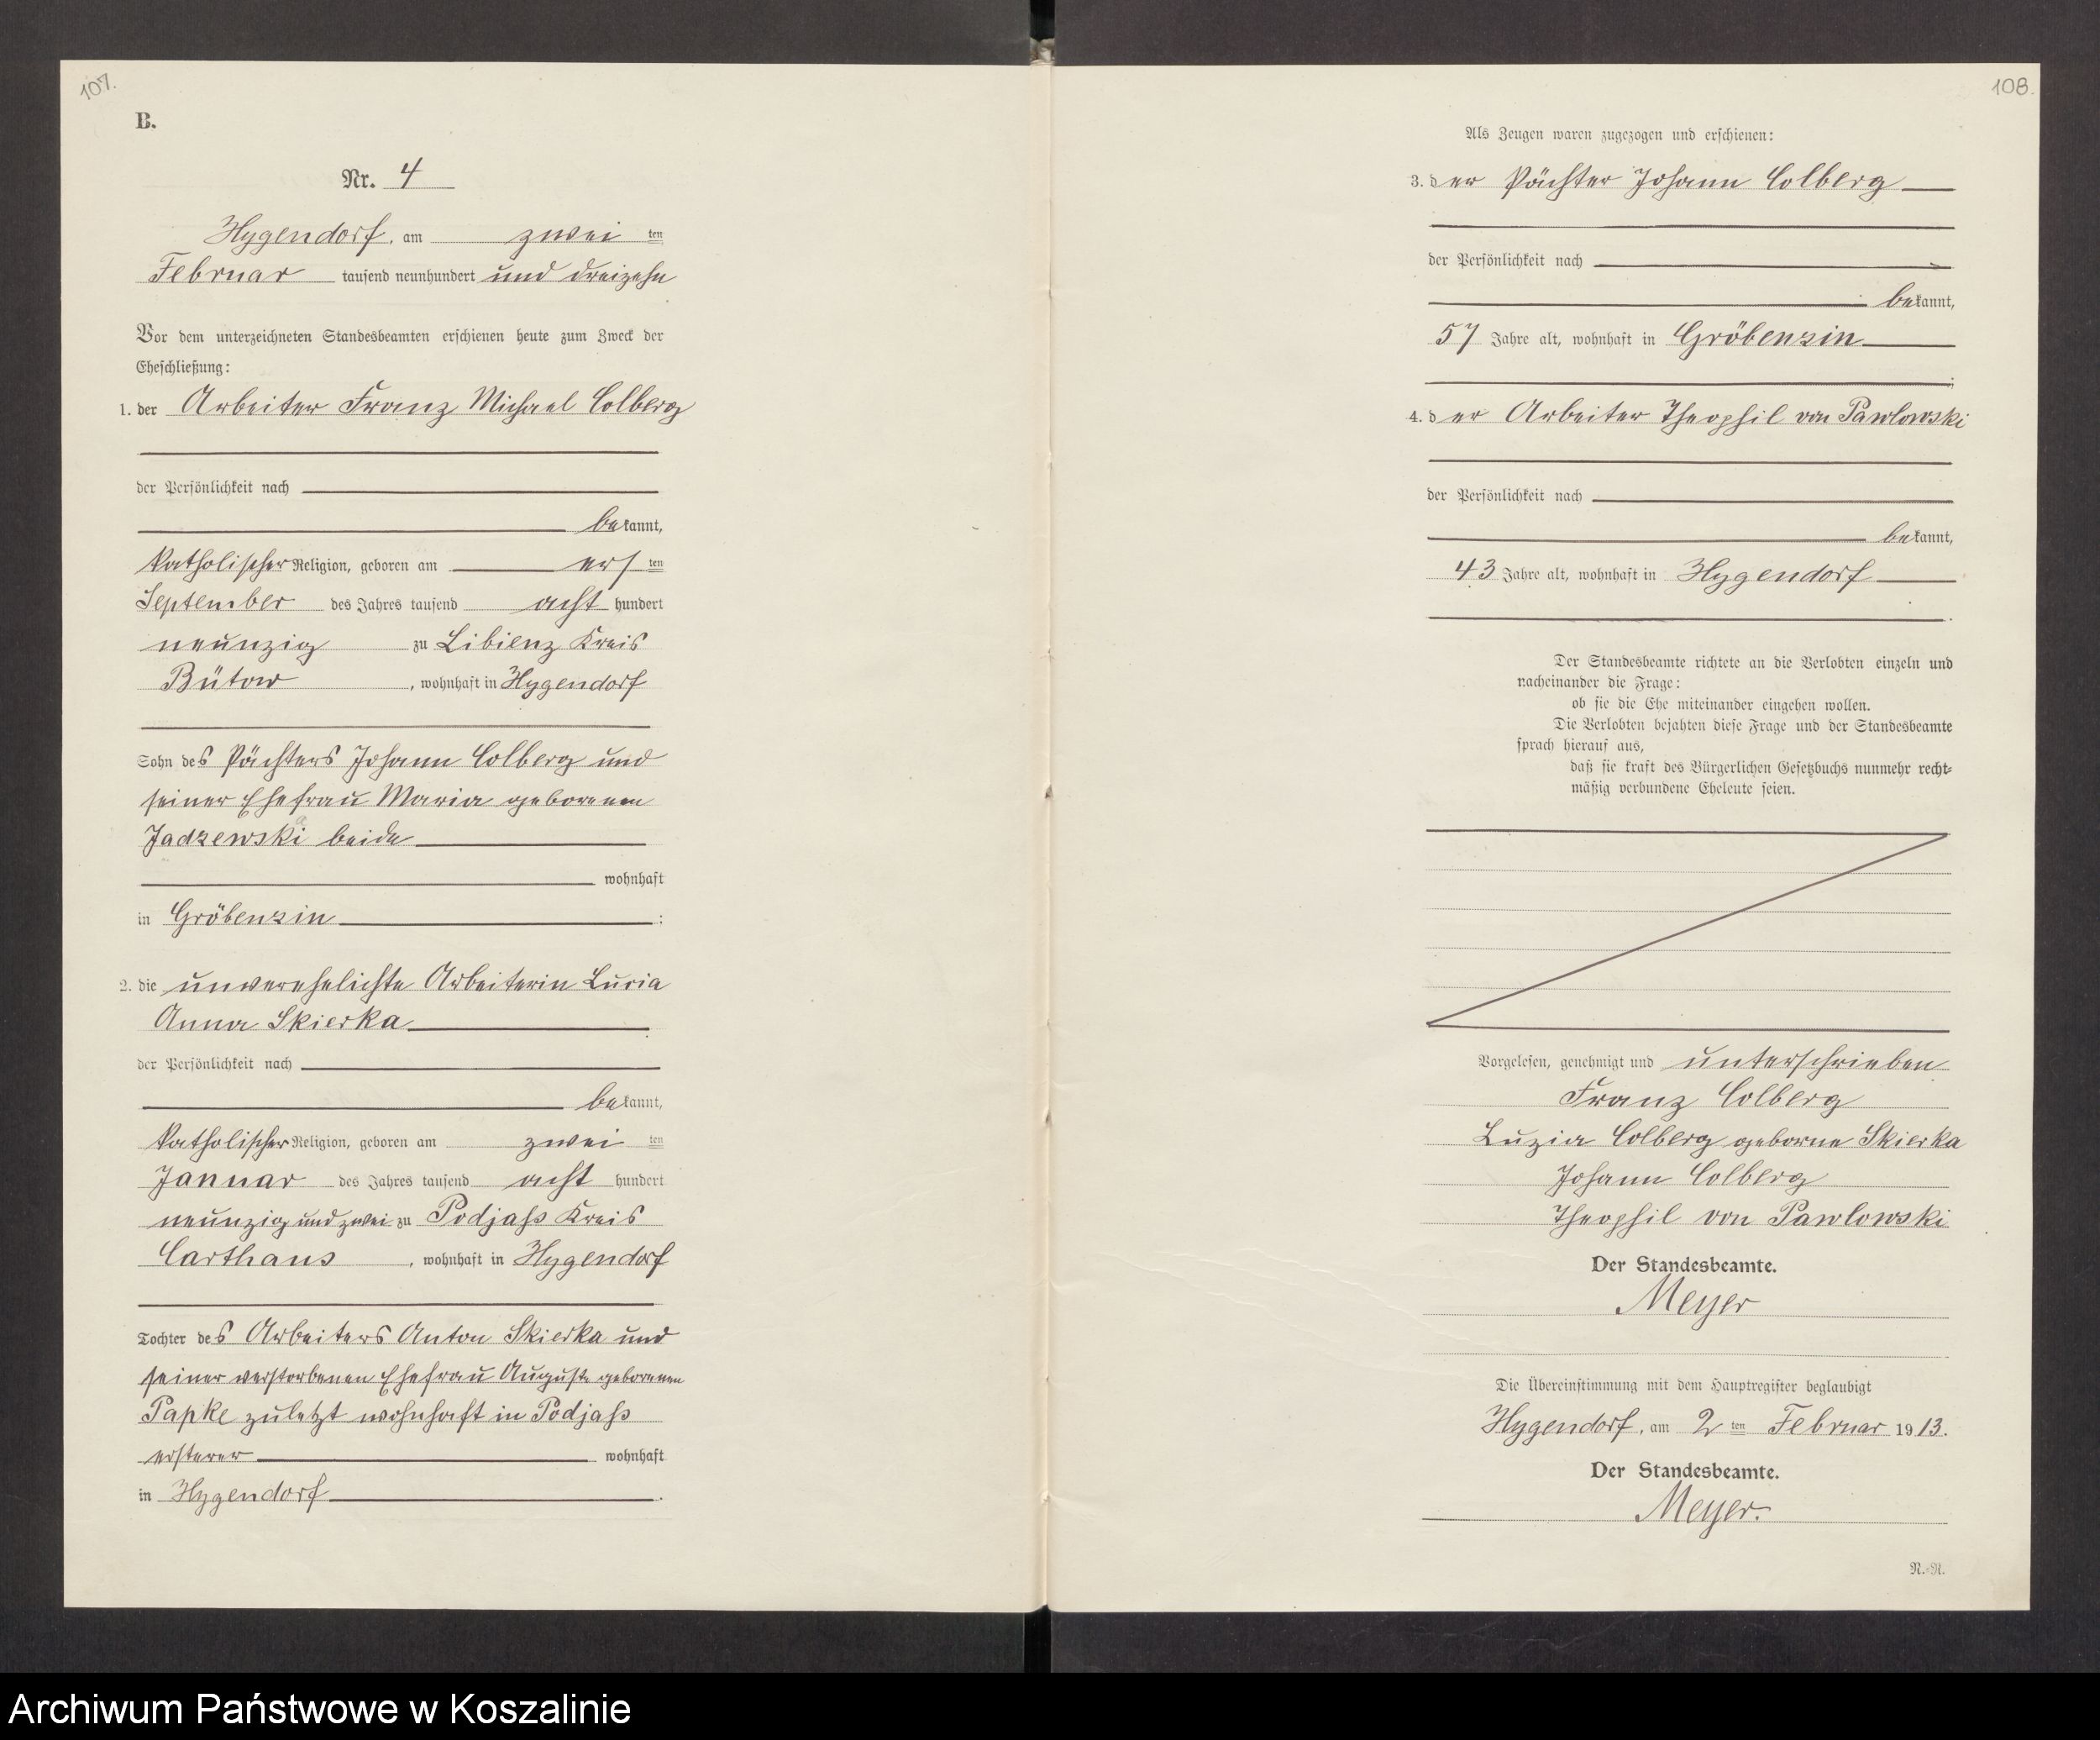 107.
B.
Nr. 4
Hygendorf, am zwei ten
Februar tausend neunhundert und dreizehn
Vor dem unterzeichneten Standesbeamten erschienen heute zum Zweck der
Eheschließung:
1. der Arbeiter Franz Michael Colberg
der Persönlichkeit nach
bekannt,
katholischer Religion, geboren am ers ten
September des Jahres tausend acht hundert
neunzig zu Libienz Kreis
Bütow, wohnhaft in Hygendorf
Sohn des Pächters Johann Colberg und
seiner Ehefrau Maria geborenen
Jadzewski beide
wohnhaft
in Gröbenzin :
2. die unverehelichte Arbeiterin Lucia
Anna Skierka
der Persönlichkeit nach
bekannt,
katholischer Religion, geboren am zwei ten
Januar des Jahres tausend acht hundert
neunzig und zwei zu Podjaß Kreis
Carthaus, wohnhaft in Hygendorf
Tochter des Arbeiters Anton Skierka und
seiner verstorbenen Ehefrau Auguste geborenen
Papke zuletzt wohnhaft in Podjaß
ersterer wohnhaft
in Hygendorf.
108.
Als Zeugen waren zugezogen und erschienen:
3. der Pächter Johann Colberg
der Persönlichkeit nach
bekannt,
57 Jahre alt, wohnhaft in Gröbenzin
;
4. der Arbeiter Theophil von Pawlowski
der Persönlichkeit nach
bekannt,
43 Jahre alt, wohnhaft in Hygendorf
.
Der Standesbeamte richtete an die Verlobten einzeln und
nacheinander die Frage:
ob sie die Ehe miteinander eingehen wollen.
Die Verlobten bejahten diese Frage und der Standesbeamte
sprach hierauf aus,
daß sie kraft des Bürgerlichen Gesetzbuchs nunmehr recht-
mäßig verbundene Eheleute seien.
Vorgelesen, genehmigt und unterschrieben
Franz Colberg
Luzia Colberg geborne Skierka
Johann Colberg
Theophil von Pawlowski
Der Standesbeamte.
Meyer
Die Übereinstimmung mit dem Hauptregister beglaubigt
Hygendorf, am 2 ten Februar 1913.
Der Standesbeamte.
Meyer.
N.-N.
Archiwum Państwowe w Koszalinie